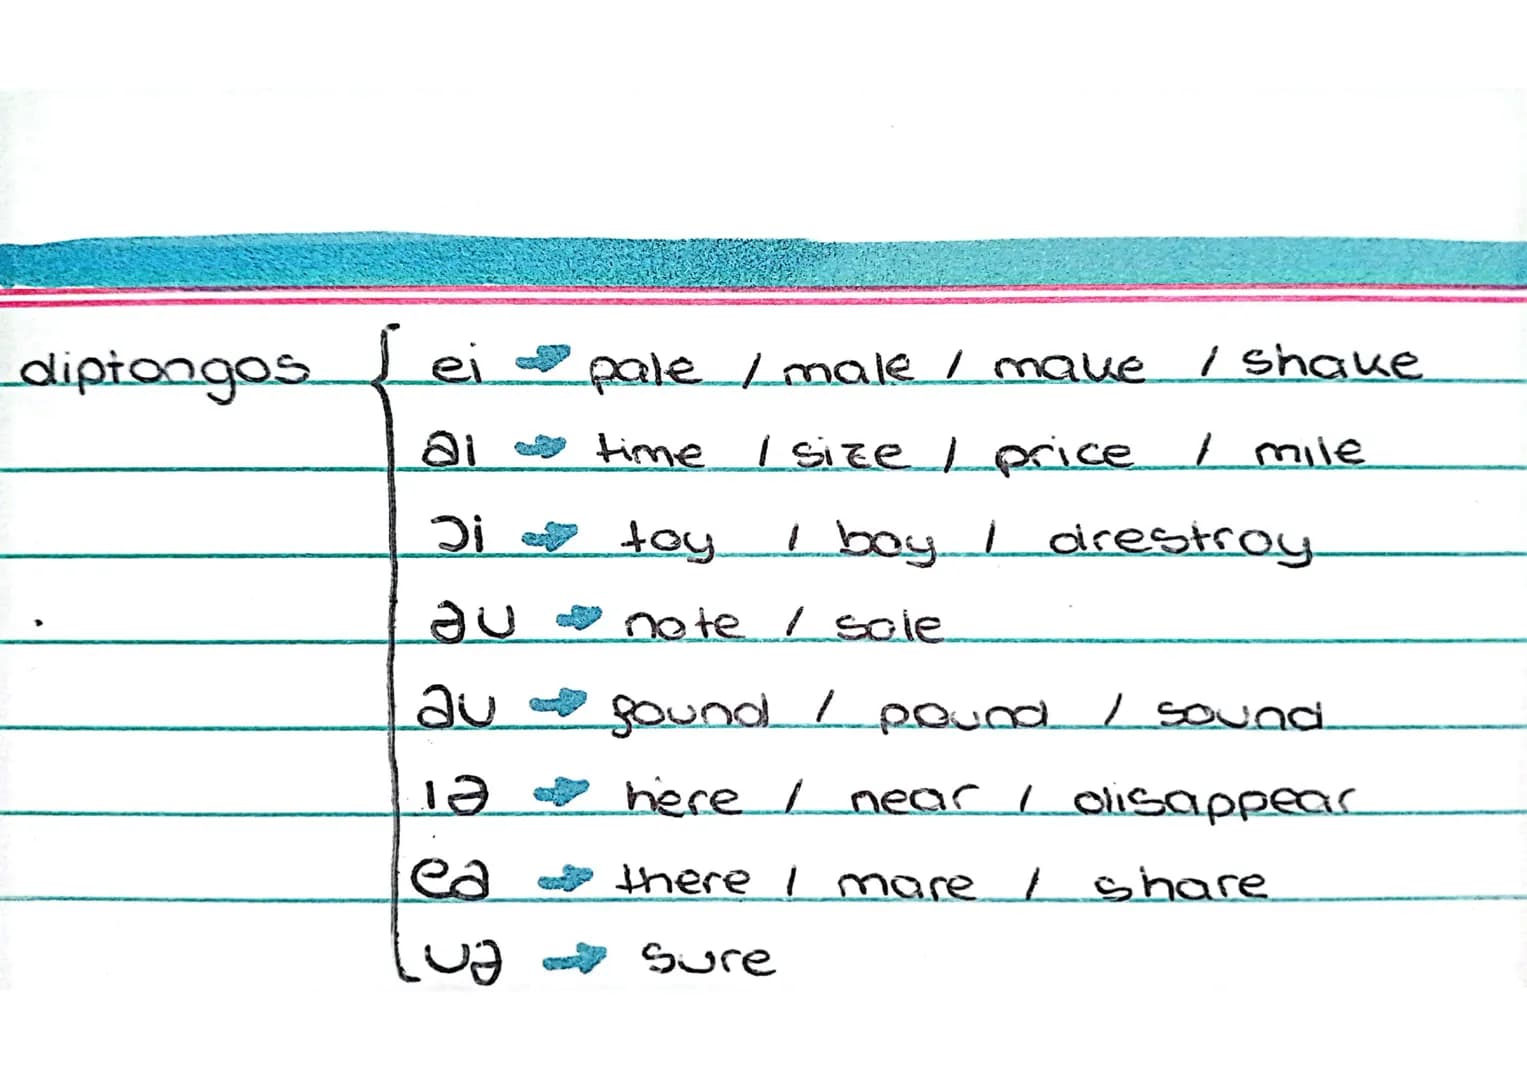 diptongos { ei → pale / male / make / shake
aı → time / size / price / mile
ɔi → toy / boy / drestroy
əu → note / sole
au → gound / pound / sound
ıə → here / near / disappear
eə → there / mare / share
uə → sure